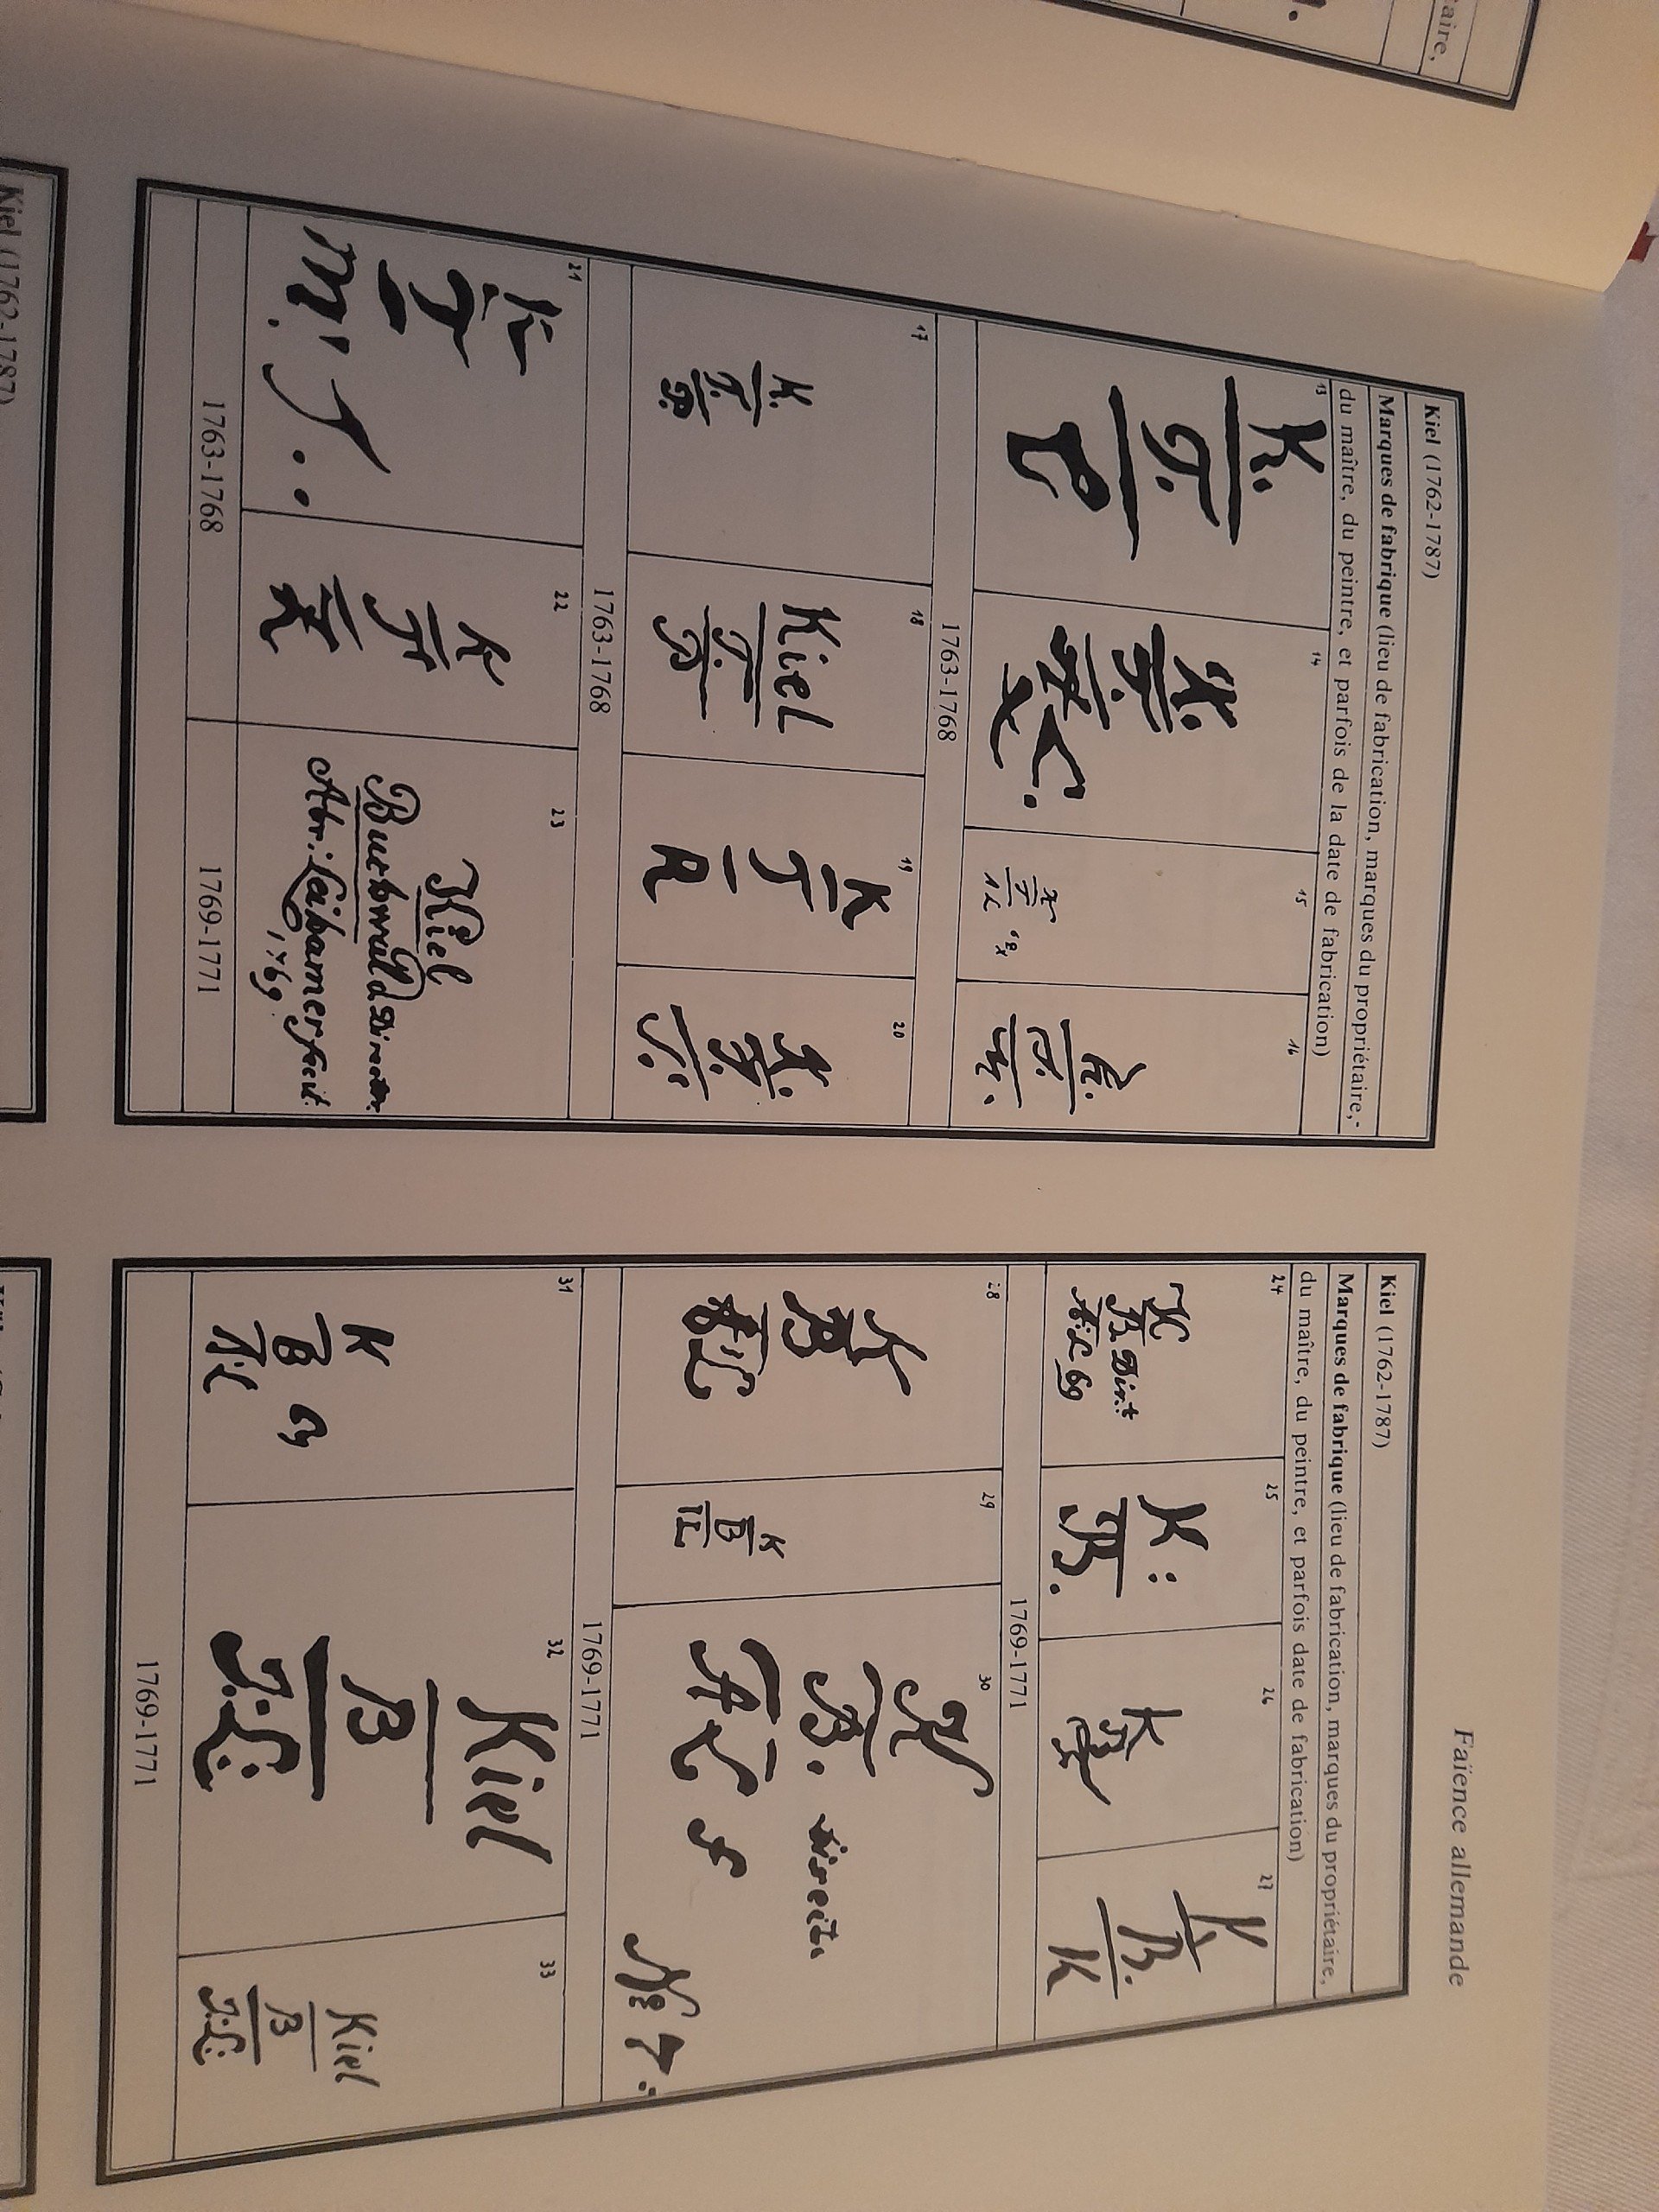 Faïence allemande
aire,
Kiel (1762-1787)
Marques de fabrique (lieu de fabrication, marques du propriétaire,-
du maître, du peintre, et parfois de la date de fabrication)
13
K.
T.
P
14
K.
T.
15
K
T
1L
16
17
K.
T.
18
Kiel
T.
B.
19
K
T
R
20
K.
T.
1763-1768
1763-1768
21
K
T
22
K
T
K
23
Kiel
Buchwald Director.
Abr: Leihamer fecit
1769
1763-1768
1769-1771
Kiel (1762-1787)
Marques de fabrique (lieu de fabrication, marques du propriétaire,
du maître, du peintre, et parfois date de fabrication)
24
K
B. Dirt
A:L 69
25
K:
B.
26
K
B
27
K
B.
K
1769-1771
28
K
B
29
K
B
IL
30
K
B. Direct.
A L f
No: 7:
1769-1771
31
K
B
AL
32
Kiel
B
J:L:
33
Kiel
B
J:L:
1769-1771
Kiel (1762-1787)